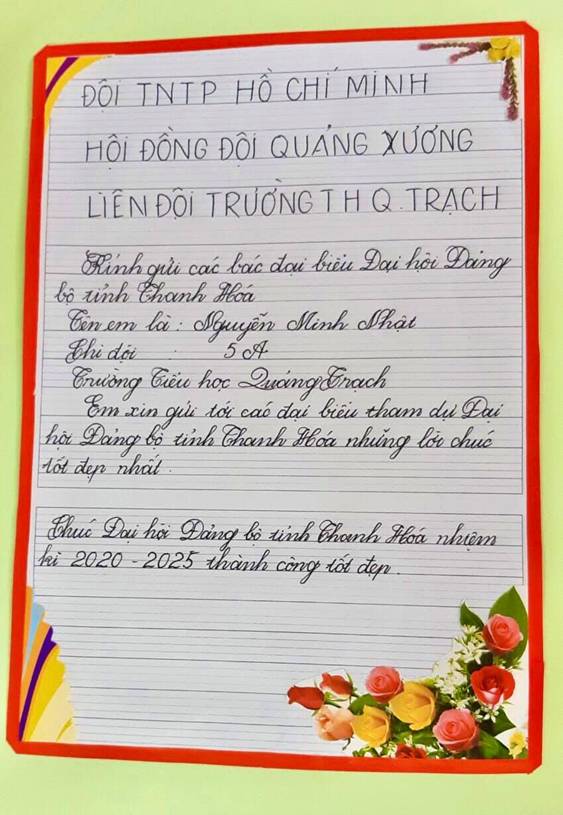 ĐỘI TNTP HỒ CHÍ MINH
HỘI ĐỒNG ĐỘI QUẢNG XƯƠNG
LIÊN ĐỘI TRƯỜNG TH Q. TRẠCH
Kính gửi các bác đại biểu Đại hội Đảng
bộ tỉnh Thanh Hóa
Tên em là : Nguyễn Minh Nhật
Chi đội : 5A
Trường Tiểu học Quảng Trạch
Em xin gửi tới các đại biểu tham dự Đại
hội Đảng bộ tỉnh Thanh Hóa những lời chúc
tốt đẹp nhất.
Chúc Đại hội Đảng bộ tỉnh Thanh Hóa nhiệm
kì 2020 - 2025 thành công tốt đẹp.